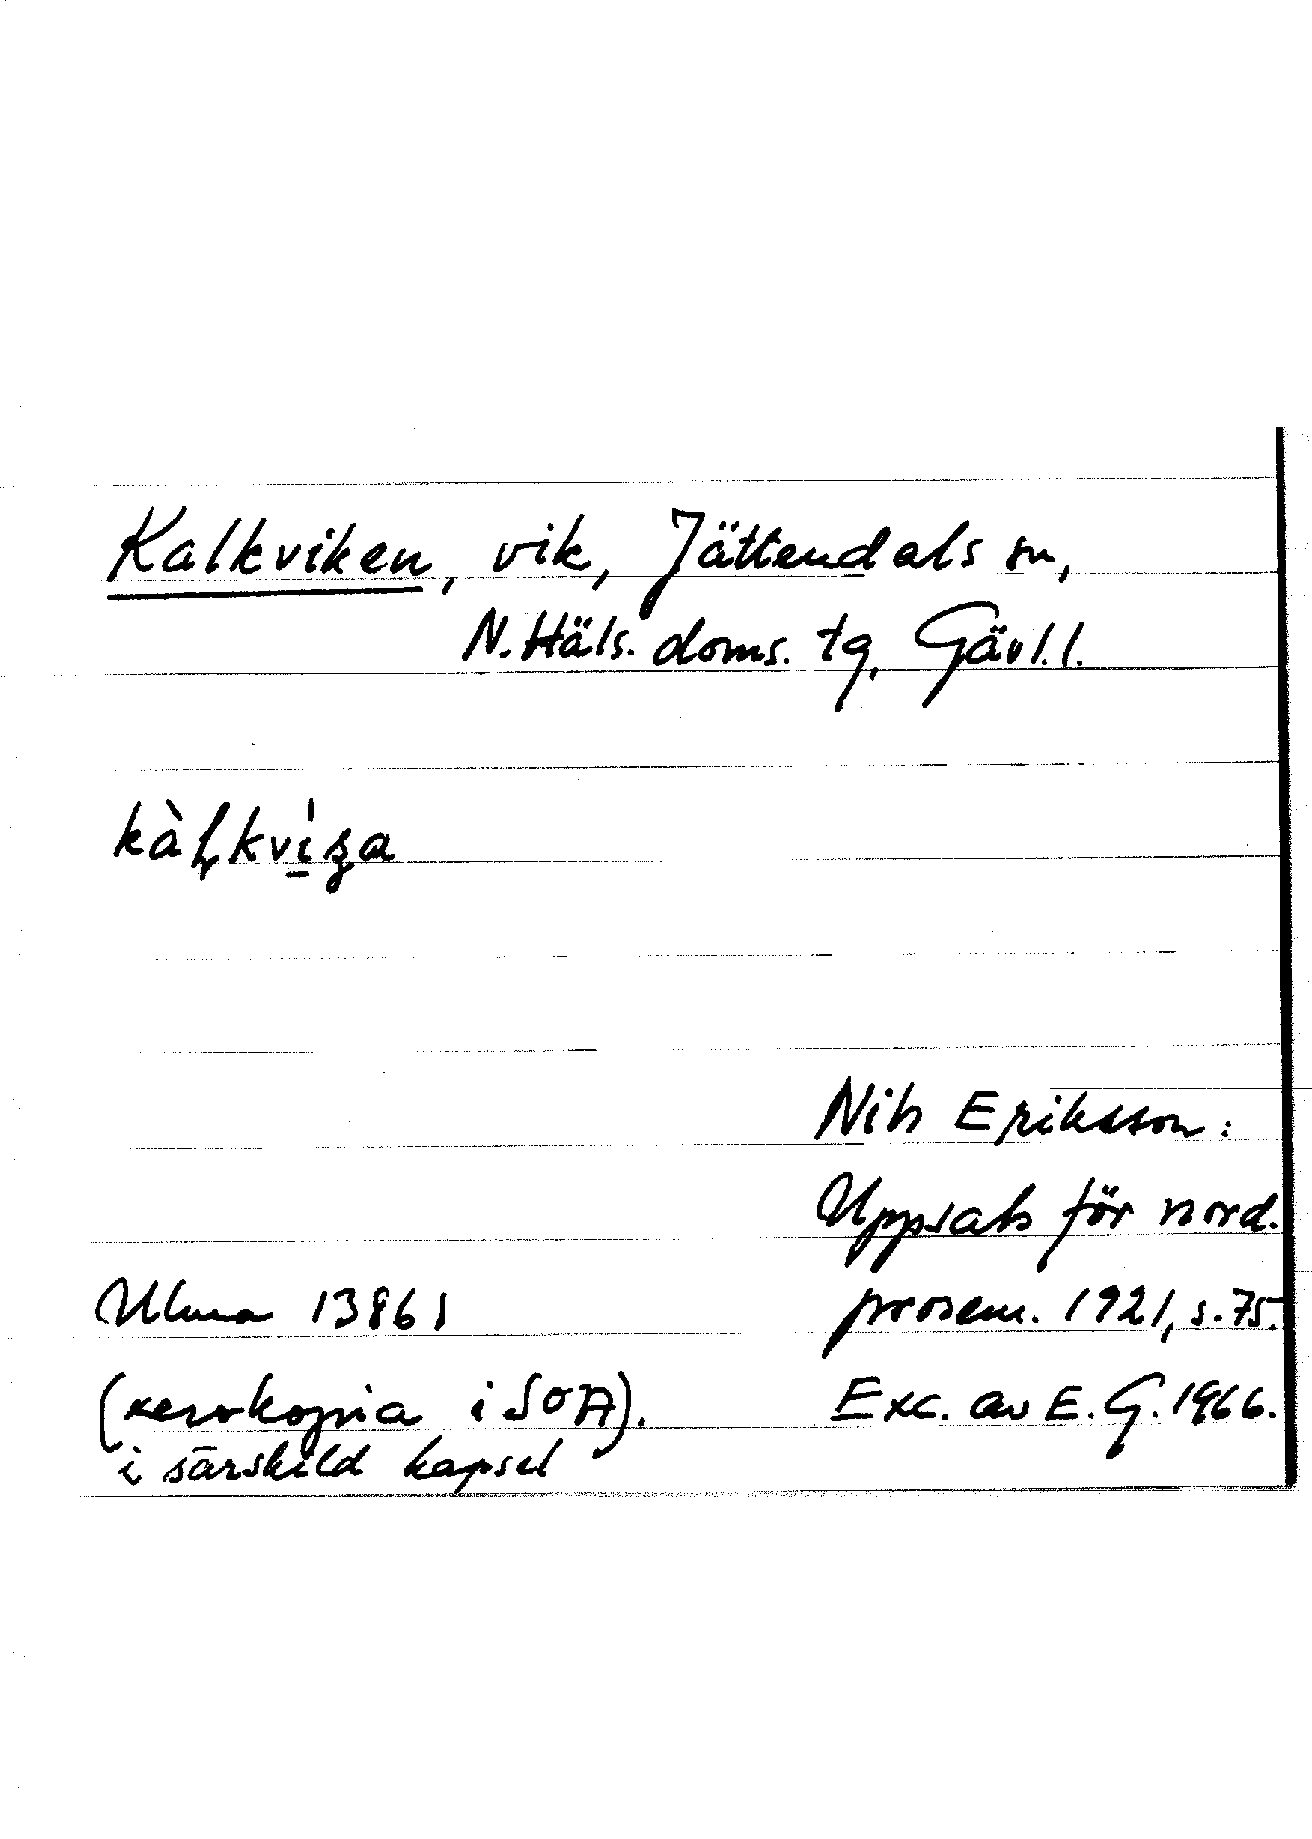 Kalkviken, vik, Jättendals sn,
N. Häls. doms. tg, Gävl. l.
Nils Eriksson:
Uppsats för nord.
Ulma 13861 prosem. 1921, s. 75.
(xerokopia i SOA). Exc. av E. G. 1966.
i särskild kapsel